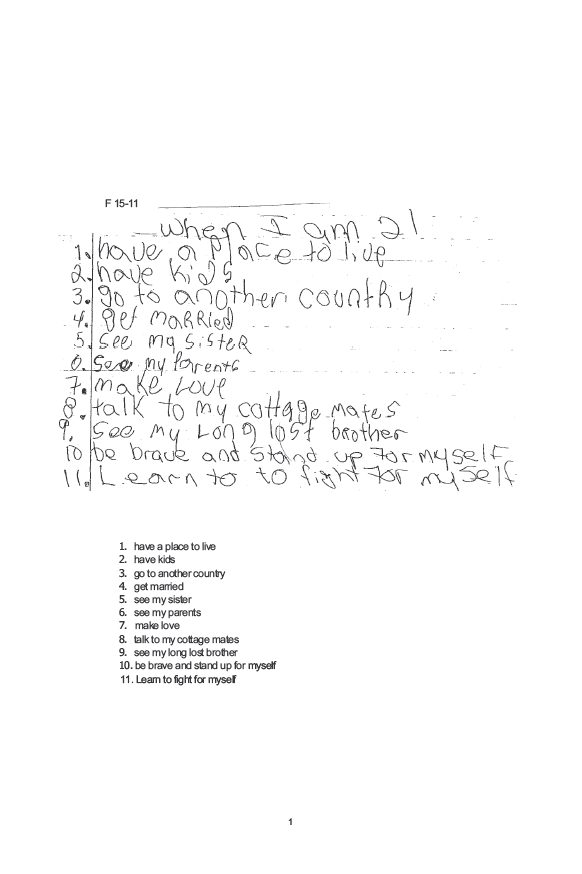 F 15-11
when I am 21
1. have a place to live
2. have kids
3. go to another country
4. get maRRied
5. see my sisteR
6. See my parents
7. make Love
8. talk to my cottage mates
9. see my Long lost brother
10 be brave and stand up for myself
11. Learn to to fight for myself
1. have a place to live
2. have kids
3. go to another country
4. get married
5. see my sister
6. see my parents
7. make love
8. talk to my cottage mates
9. see my long lost brother
10. be brave and stand up for myself
11. Learn to fight for myself
1